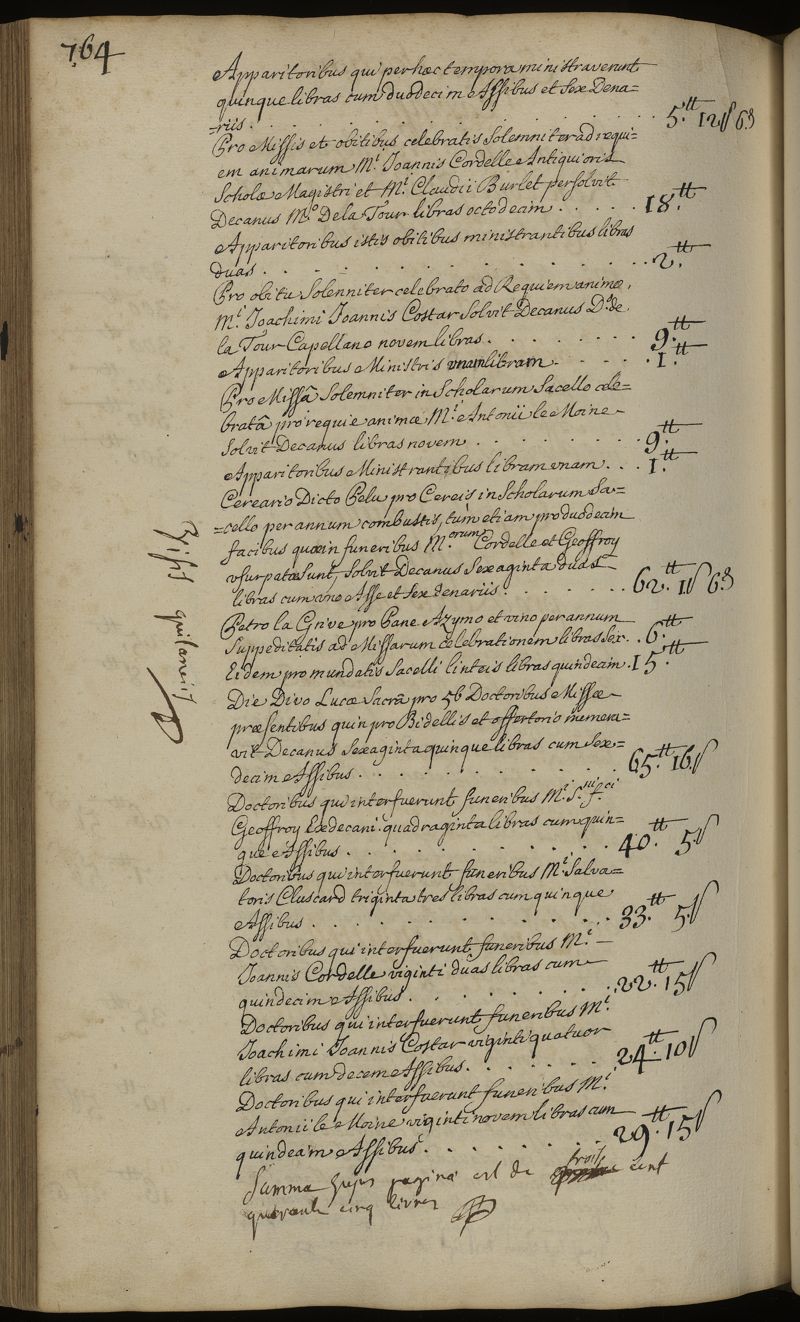 764
Apparitoribus qui per hæc tempora ministraverunt
quinque libras cum duodecim Assibus et sex Dena=
=riis . . . . . . . . . . . 5.tt 12ſ 6₰
Pro Missis et obitibus celebratis solemniter ad requi=
em animarum M.i Joannis Cordelle Antiquioris
Scholæ Magistri et M.i Claudii Burlet persolvit
Decanus M.o De la Tour libras octodecim . . . . . 18.tt
Apparitoribus istis obitibus ministrantibus libras
duas . . . . . . . . . . . 2.tt
Pro obitu Solenniter celebrato ad Requiem animæ,
M.i Joachimi Joannis Costar Solvit Decanus D.o de
la Tour Capellano novem libras . . . . . . . 9.tt
Apparitoribus Ministris unam libram . . . . . 1.tt
Pro Missâ Solemniter in Scholarum Sacello cele=
bratâ pro requie animæ M.i Antonii le Moine
Solvit Decanus libras novem . . . . . . . 9.tt
Apparitoribus Ministrantibus libram unam . . . 1.tt
Cereario Dicto Pelu pro Cereis in Scholarum Sa=
=cello per annum combustis, tùm etiam pro duodecim
facibus quæ in funeribus M.orum Cordelle et Geoffroy
usurpatæ sunt, Solvit Decanus Sexaginta duas
libras cum uno Asse et sex denariis . . . . . . 62.tt 1ſ 6₰
Petro la Grive pro Pane Azymo et vino per annum
Suppeditatis ad Missarum celebrationem libras sex . . 6.tt
Eidem pro mundatis Sacelli linteis libras quindecim . 15.tt
Die Divo Lucæ Sacrâ pro 56 Doctoribus Missæ
præsentibus quin pro Bidellis et offertorio numera=
vit Decanus Sexaginta quinque libras cum Sex=
decim Assibus . . . . . . . . . 65.tt 16ſ
Doctoribus qui interfuerunt funeribus M.i
Geoffroy Exdecani quadraginta libras cum quin=
que Assibus . . . . . . . . . 40.tt 5ſ
Doctoribus qui interfuerunt funeribus M.i Salva=
toris Cluscard triginta tres libras cum quinque
Assibus . . . . . . . . . . 33.tt 5ſ
Doctoribus qui interfuerunt funeribus M.i
Joannis Cordelle viginti duas libras cum
quindecim Assibus . . . . . . . . 22.tt 15ſ
Doctoribus qui interfuerunt funeribus M.i
Joachimi Joannis Costar viginti quatuor
libras cum decem Assibus . . . . . . 24.tt 10ſ
Doctoribus qui interfuerunt funeribus M.i
Antonii le Moine viginti novem libras cum
quindecim Assibus . . . . . . . 29.tt 15ſ
Summa hujus paginæ est de trois cent
quarante cinq livres